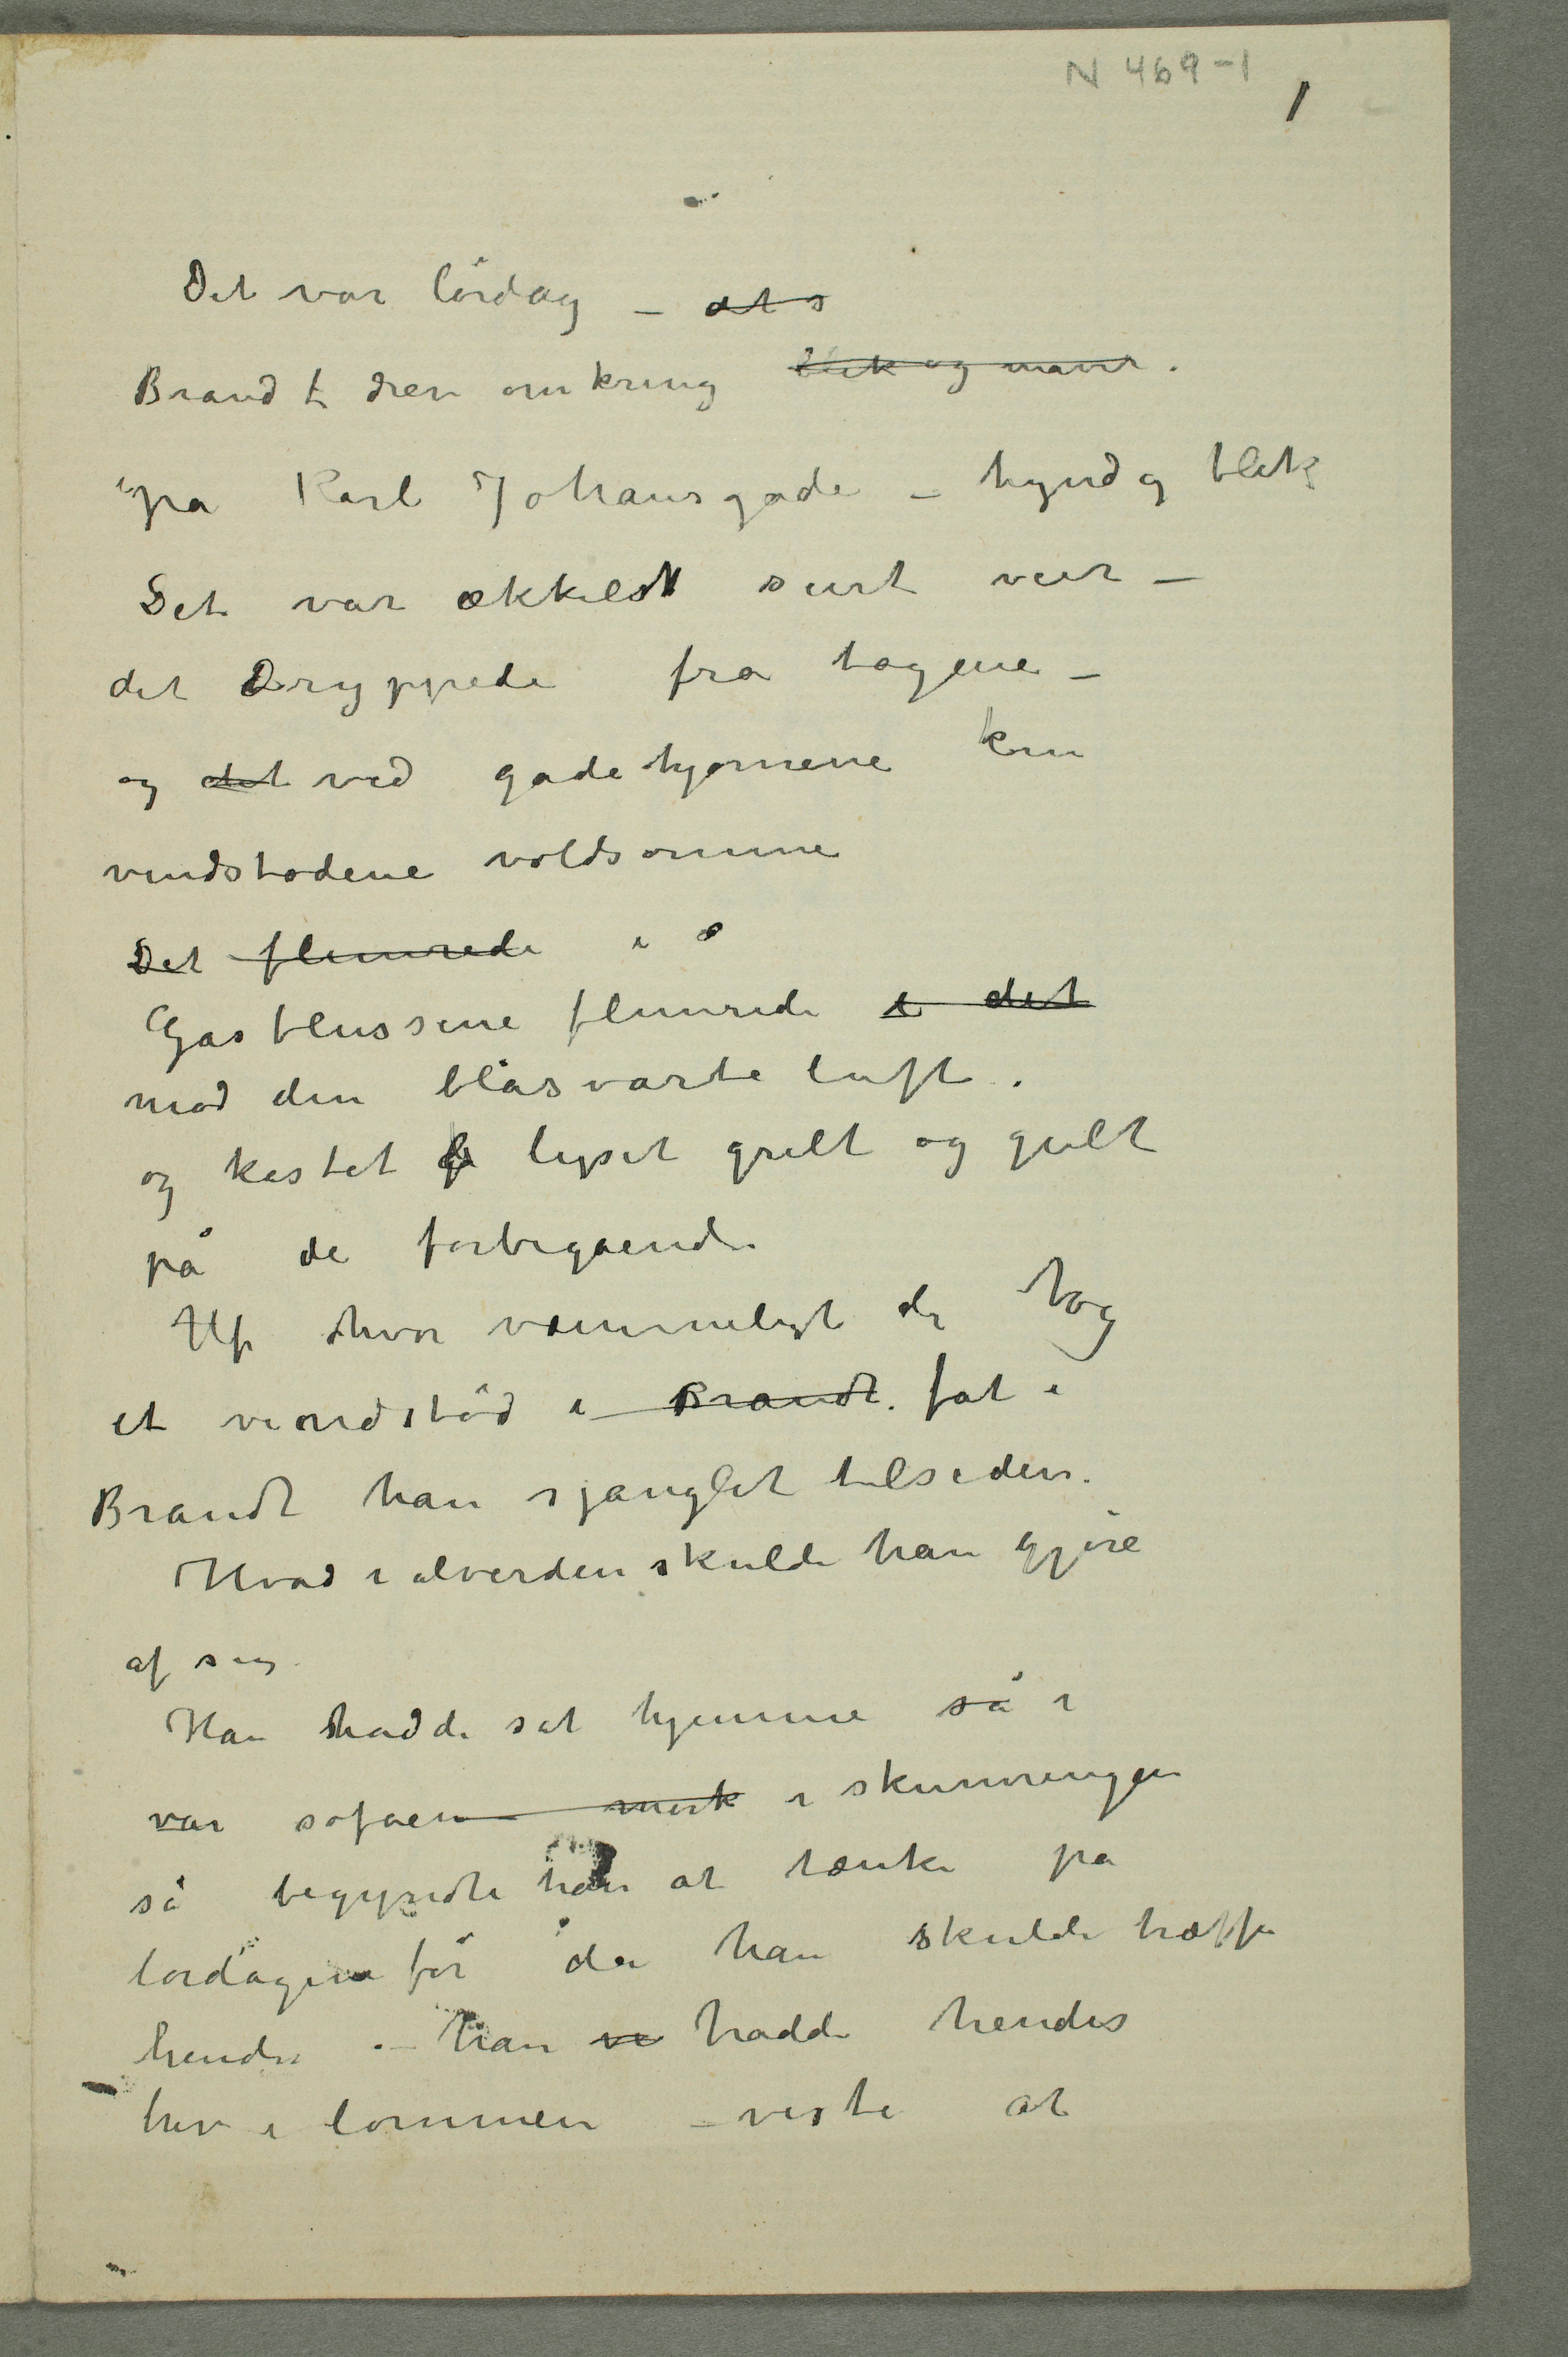 N 469-1
1
Det var lördag – at s
Brandt drev omkring blek og maver.
på Karl Johansgade – tynd og blek
Det var ækkelt surt veir –
det dryppede fra tagene –
og det ved gadehjørnene kom
vindstødene voldsomme
Det flimrede i
Gasblussene flimrede i det
mod den blåsvarte luft.
og kastet lyset grelt og gult
på de forbigående
Uf hvor væmmeligt der tog
et vindstöd i Brandt. fat i
Brandt han sjanglet tilsiden.
Hvad i alverden skulde han gjöre
af sig
Han hadde sat hjemme så i
var sofaen mørk i skumringen
så begyndte han at tænke på
lördagen för da han skulde træffe
hende – han ve hadde hendes
brev i lommen – viste at